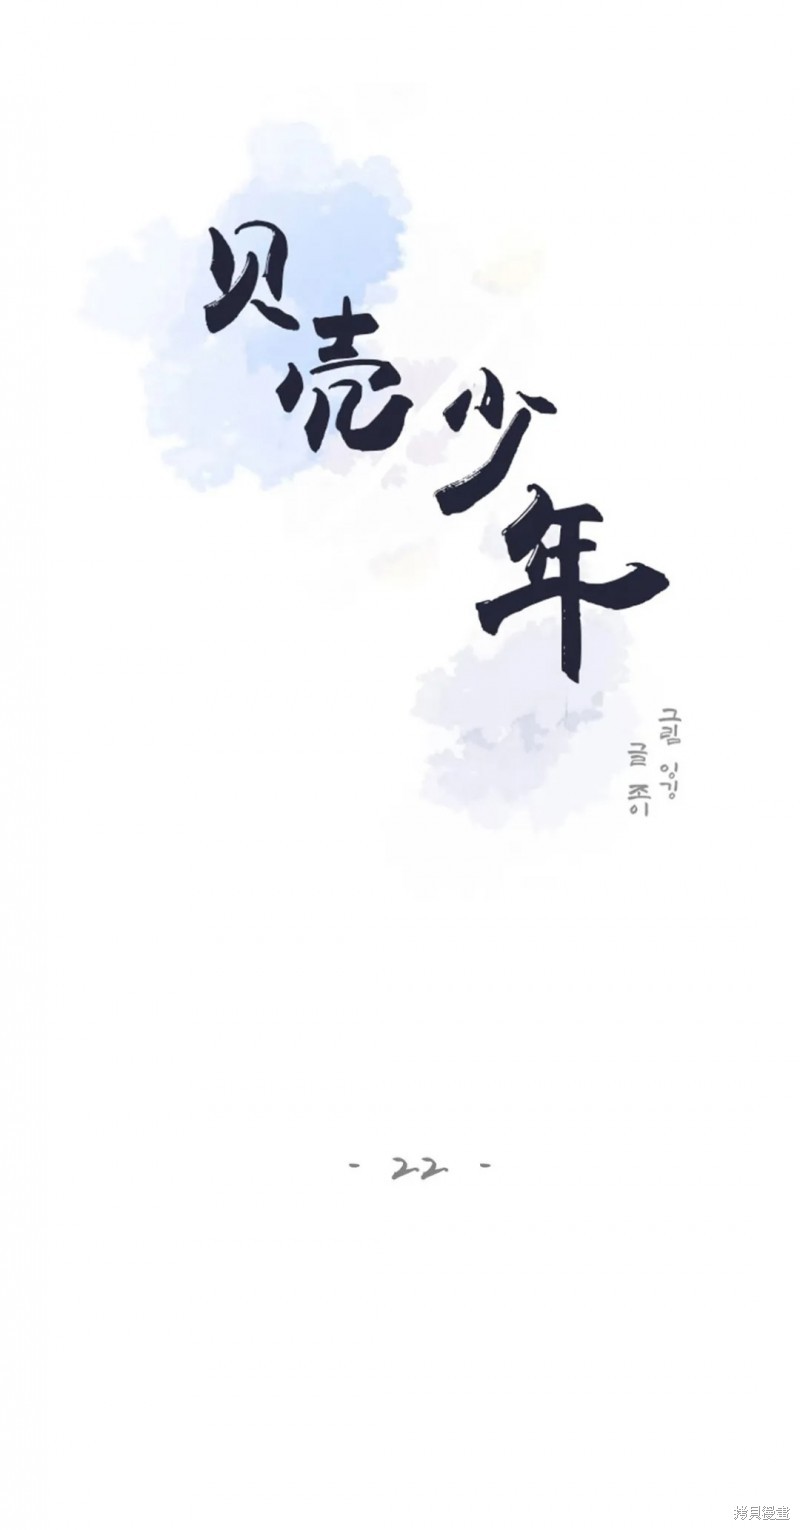 贝壳少年
그림 잉깅
글 조이
- 22 -
拷貝漫畫